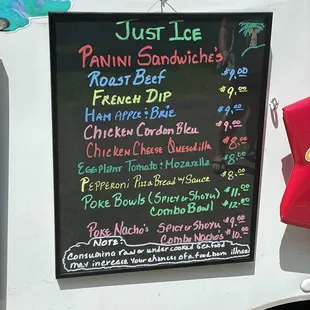 Just Ice
Panini Sandwiche's
Roast Beef $9.00
French Dip $9.00
Ham Apple & Brie $9.00
Chicken Cordon Bleu $9.00
Chicken Cheese Quesadilla $8.00
Eggplant Tomato & Mozarella $8.00
Pepperoni Pizza Bread w/ Sauce $8.00
Poke Bowls (Spicy or Shoyu) $11.00
Combo Bowl $12.00
Poke Nacho's Spicy or Shoyu $9.00
Combo Nacho's $10.00
Note:
Consuming raw or under cooked seafood
may increase your chances of a food born illness